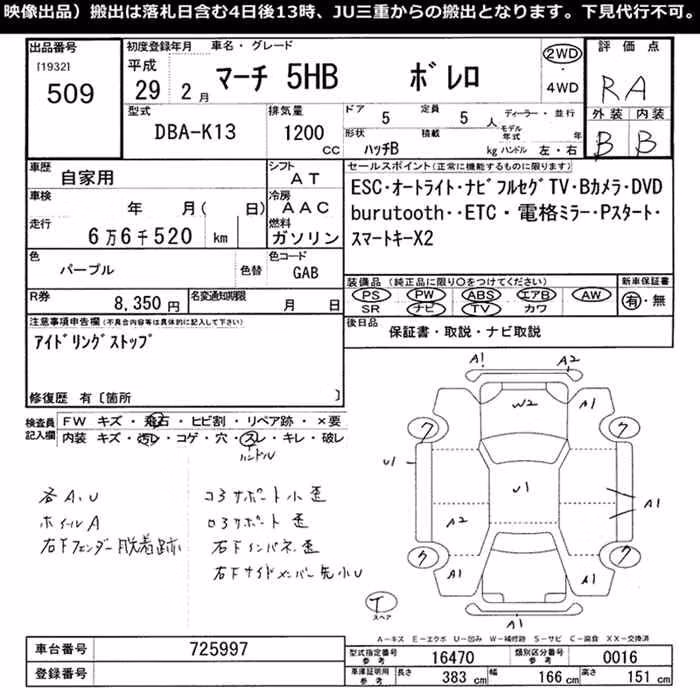 映像出品）搬出は落札日含む4日後13時、JU三重からの搬出となります。下見代行不可。
出品番号
[1932]
509
初度登録年月
平成
29 2月
車名・グレード
マーチ 5HB ボレロ
2WD
・
4WD
評価点
RA
外装 内装
B B
型式
DBA-K13
排気量
1200
CC
ドア 5
定員 5 人
ディーラー・並行
モデル年式 年
形状 ハッチB
積載 kg
ハンドル 左・右
車歴
自家用
シフト
AT
車検
年 月( 日)
冷房
AAC
走行
6万6千520 km
燃料
ガソリン
色
パープル
色替
色コード
GAB
R券
8,350円
名変通知期限
月 日
セールスポイント(正常に機能するものに限ります)
ESC・オートライト・ナビフルセグTV・Bカメラ・DVD
burutooth・・ETC・電格ミラー・Pスタート・
スマートキーX2
装備品(純正品に限り○をつけてください)
PS PW ABS エアB AW
SR ナビ TV カワ
新車保証書
有・無
後日品
保証書・取説・ナビ取説
注意事項申告欄(不具合内容等は具体的に記入して下さい)
アイドリングストップ
修復歴 有〔箇所 〕
検査員
記入欄
FW キズ・飛石・ヒビ割・リペア跡・×要
内装 キズ・汚レ・コゲ・穴・スレ・キレ・破レ
ハンドル
各A、U
ホイールA
右Fフェンダー脱着跡
コアサポート小歪
ロアサポート歪
右Fインパネ歪
右Fサイドメンバー先小U
A1
A2
W2
A1
ク
ク
U1
U1
A1
A2
ク
ク
A1
A1
T
スペア
A1
A－キズ E－エクボ U－凹み W－補修跡 S－サビ C－腐食 XX－交換済
車台番号
725997
登録番号
型式指定番号
参考
16470
類別区分番号
参考
0016
車庫証明用
参考
長さ 383 cm
幅 166 cm
高さ 151 cm